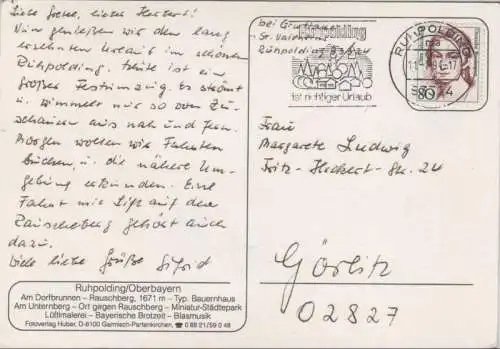 Liebe Grete, lieber Herbert!
Nun genießen wir den lang
ersehnten Urlaub im schönen
Ruhpolding. Heute ist ein
großer Festumzug. Es strömt
u. wimmelt nur so von Zu-
schauern aus nah und fern.
Morgen wollen wir Fahrten
buchen, u. die nähere Um-
gebung erkunden. Eine
Fahrt mit Lift auf den
Rauschberg gehört auch
dazu.
Viele liebe Grüße Sigrid
Ruhpolding/Oberbayern
Am Dorfbrunnen – Rauschberg, 1671 m – Typ. Bauernhaus
Am Unternberg – Ort gegen Rauschberg – Miniatur-Städtepark
Lüftlmalerei – Bayerische Brotzeit – Blasmusik
Fotoverlag Huber, D-8100 Garmisch-Partenkirchen, ☎ 0 88 21/59 0 48
bei
St. Valentin
Ruhpolding 83324
Ruhpolding
ist richtiger Urlaub
RUHPOLDING
80
Frau
Margarete Ludwig
Fritz-Heckert-Str. 24
Görlitz
02827